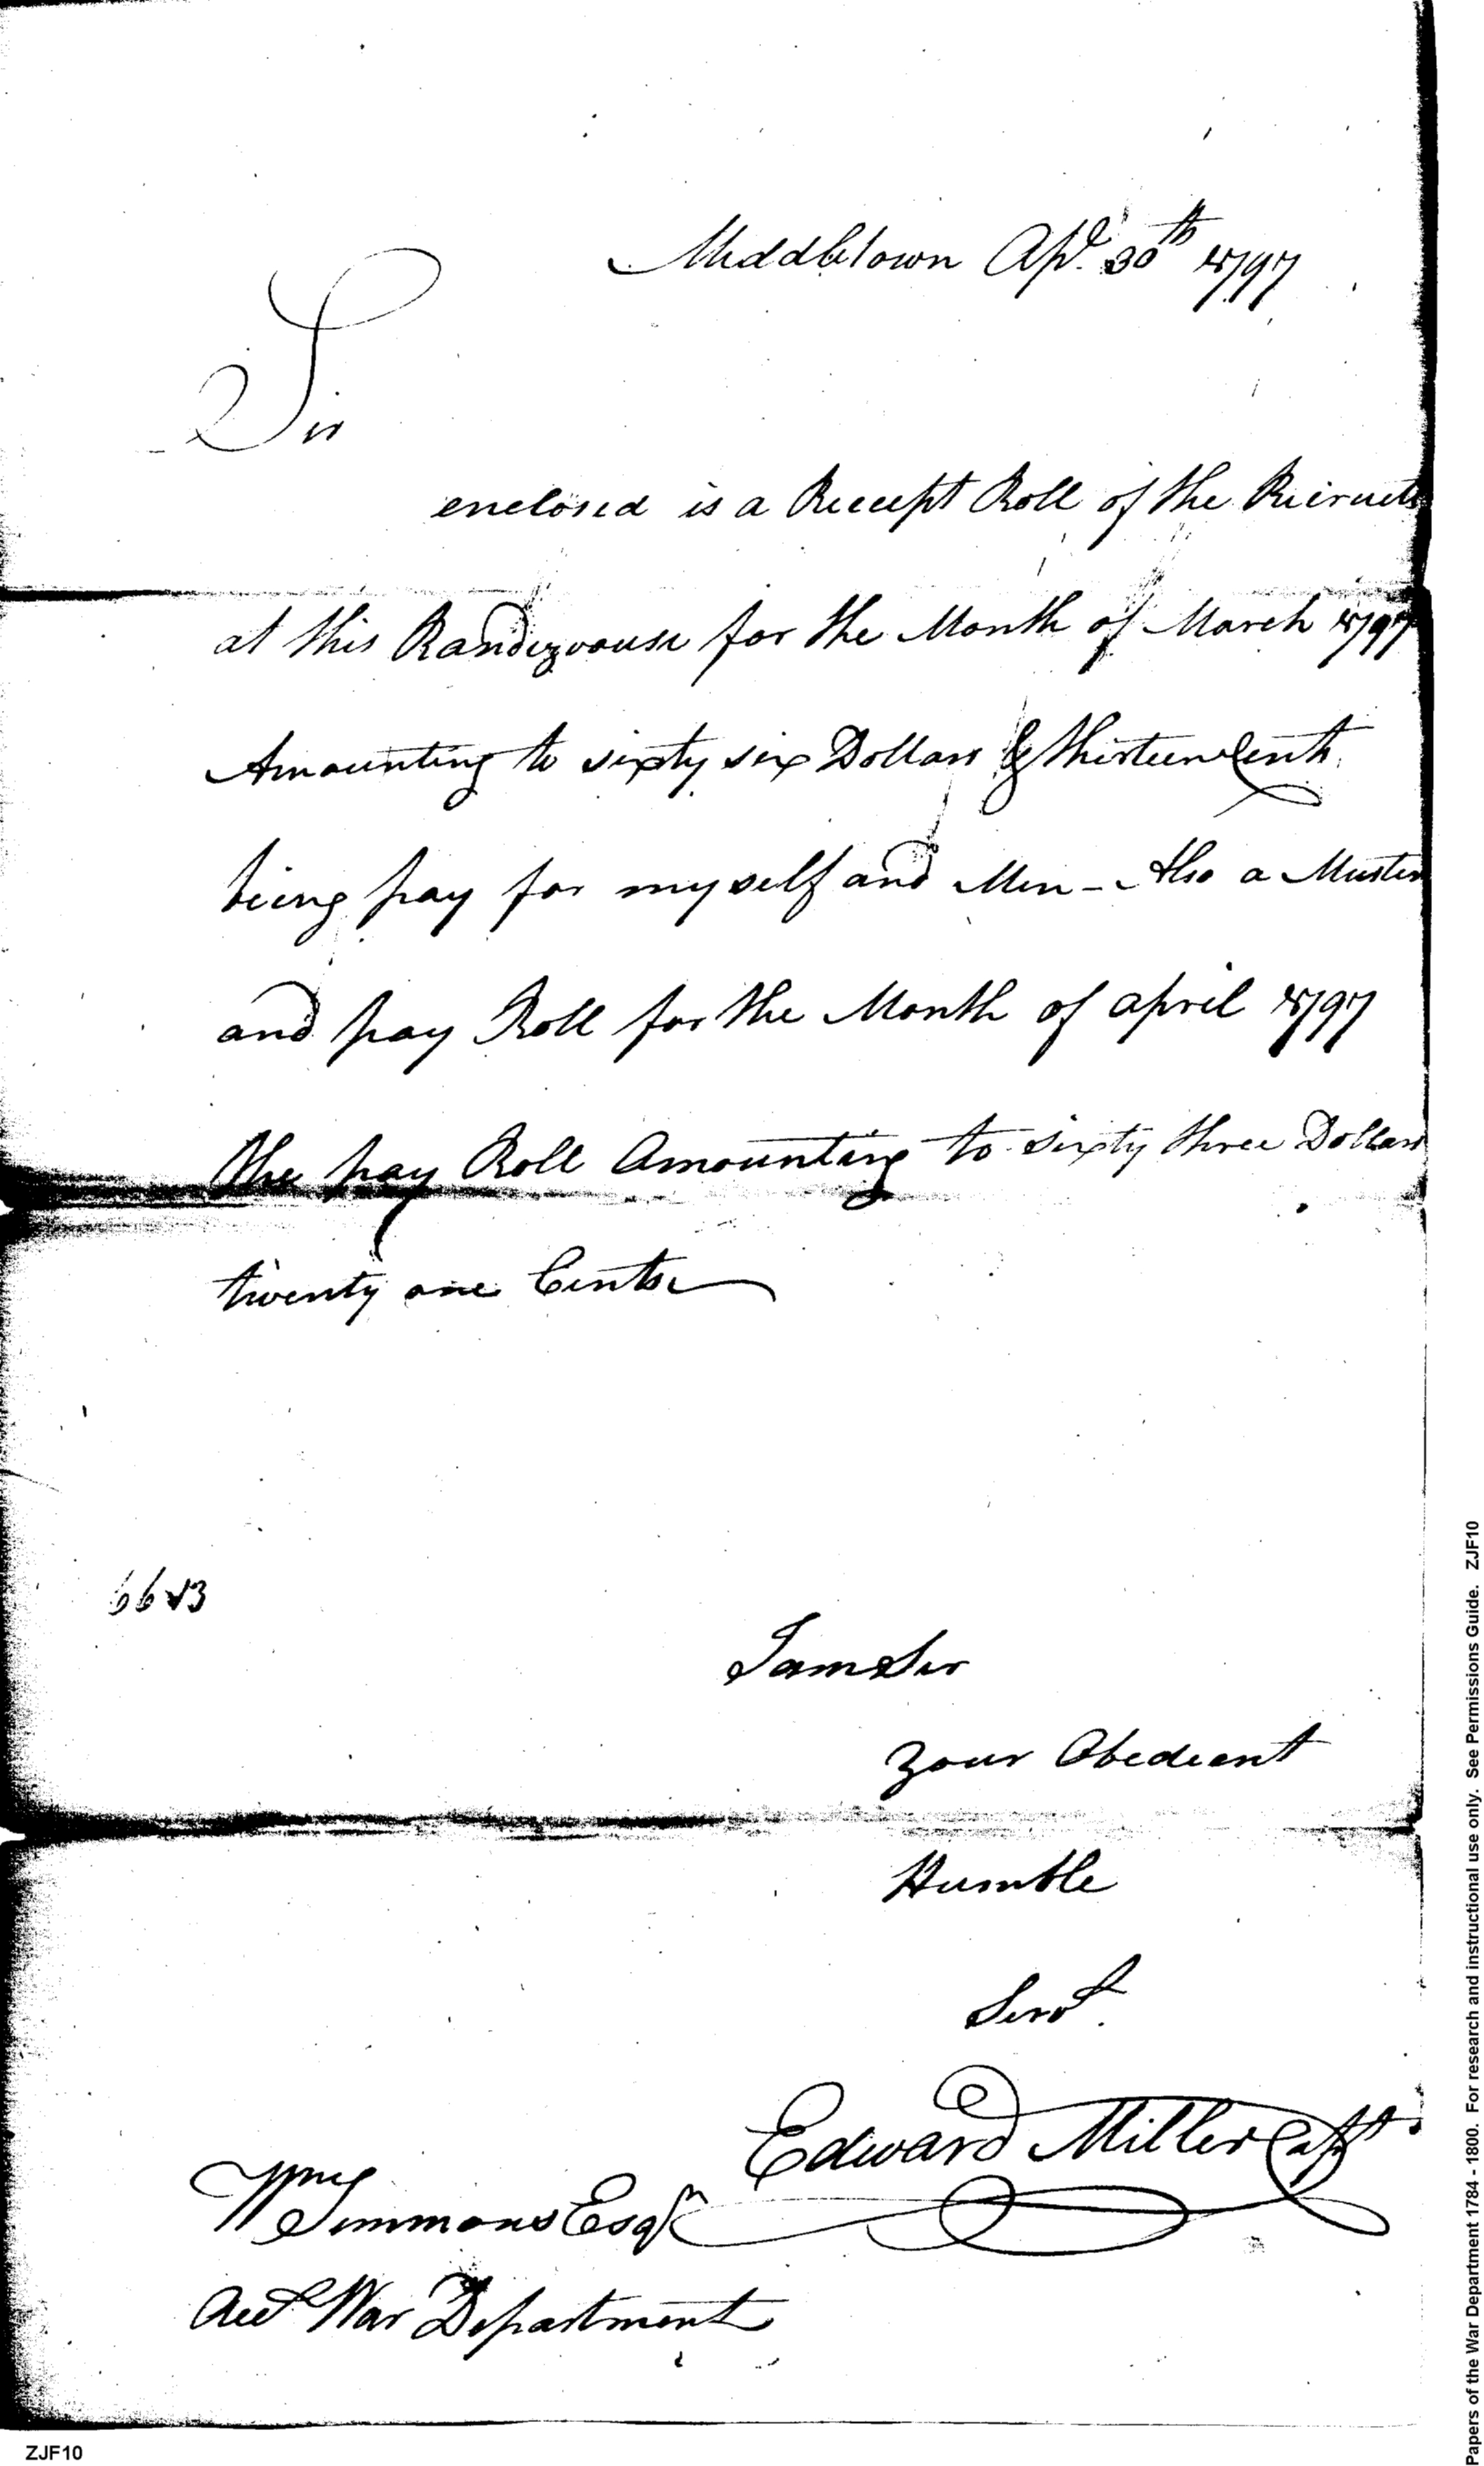 Middletown Apl. 30th 1797
Sir
enclosed is a Receept Roll of the Recruets
at this Randezvouse for the Month of March 1797
Amounting to sixty six Dollars & thirteen Cents
being pay for myself and Men - Also a Muster
and pay Roll for the Month of april 1797
the pay Roll Amounting to sixty three Dollars
twenty one Cents
66 13
I am Sir
Your Obedeant
Humble
Servt.
Edward Miller Capt
Wm Simmons Esqr
Acct War Department
ZJF10
Papers of the War Department 1784 - 1800. For research and instructional use only. See Permissions Guide. ZJF10